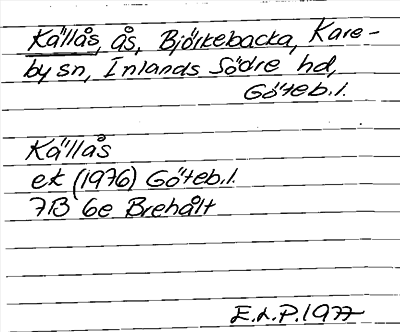 Källås, ås, Björkebacka, Kare-
by sn, Inlands Södre hd,
Göteb.l.
Källås
ek (1976) Göteb.l.
7B 6e Brehålt
E.L.P.1977